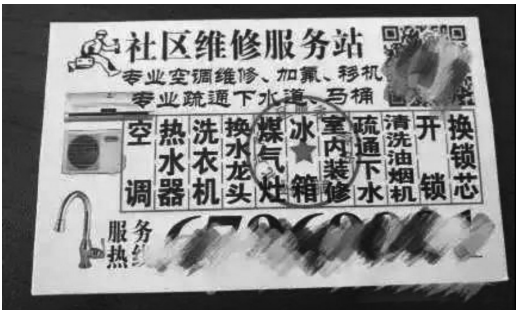 社区维修服务站
专业空调维修、加氟、移机
专业疏通下水道、马桶
空调
热水器
洗衣机
换水龙头
煤气灶
冰箱
室内装修
疏通下水
清洗油烟机
开锁
换锁芯
服务
热线